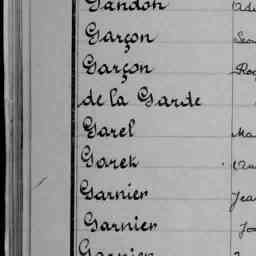 Gandon
Garçon
Garçon
de la Garde
Garel
Garek
Garnier Jean
Garnier
Garnier